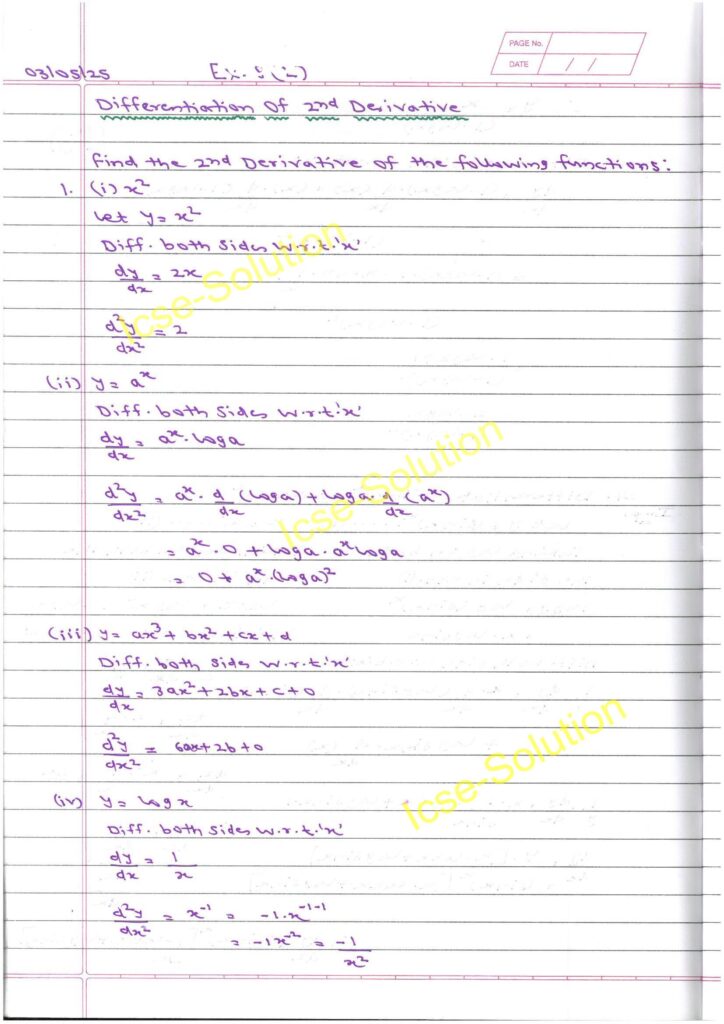 PAGE No.
DATE / /
03/05/25 Ex. 9(2)
Differentiation of 2nd Derivative
find the 2nd Derivative of the following functions:
1. (i) x²
let y = x²
Diff. both sides w.r.t. 'x'
dy/dx = 2x
d²y/dx² = 2
(ii) y = aˣ
Diff. both sides w.r.t. 'x'
dy/dx = aˣ. loga
d²y/dx² = aˣ. d/dx (loga) + loga. d/dx (aˣ)
= aˣ. 0 + loga. aˣ loga
= 0 + aˣ. (loga)²
(iii) y = ax³ + bx² + cx + d
Diff. both sides w.r.t. 'x'
dy/dx = 3ax² + 2bx + c + 0
d²y/dx² = 6ax + 2b + 0
(iv) y = log x
Diff. both sides w.r.t. 'x'
dy/dx = 1/x
d²y/dx² = x⁻¹ = -1. x⁻¹⁻¹
= -1x⁻² = -1/x²
Icse-Solution
Icse-Solution
Icse-Solution